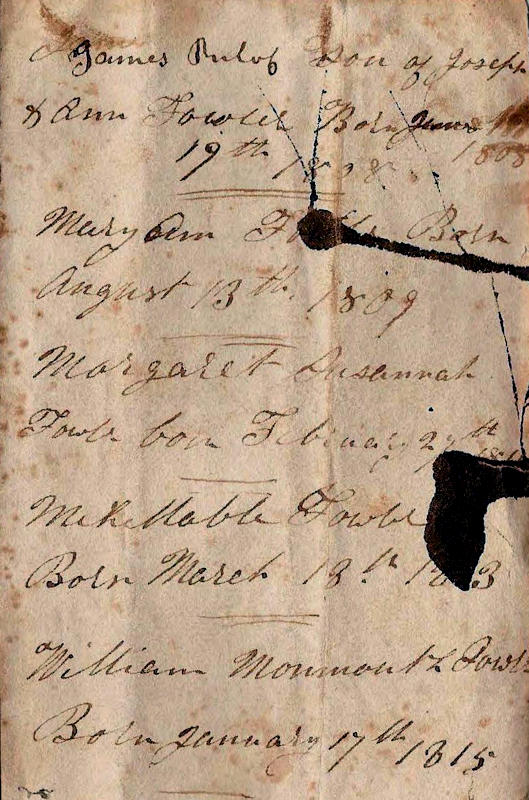 James Son of Joseph
& Ann Fowler Born June
19th 1808
Mary Ann Born
August 13th 1809
Margaret Susannah
Fowle born Febinary
Mehettable Fowler
Born March 18th 1813
William Monmouth Fowle
Born January 17th 1815